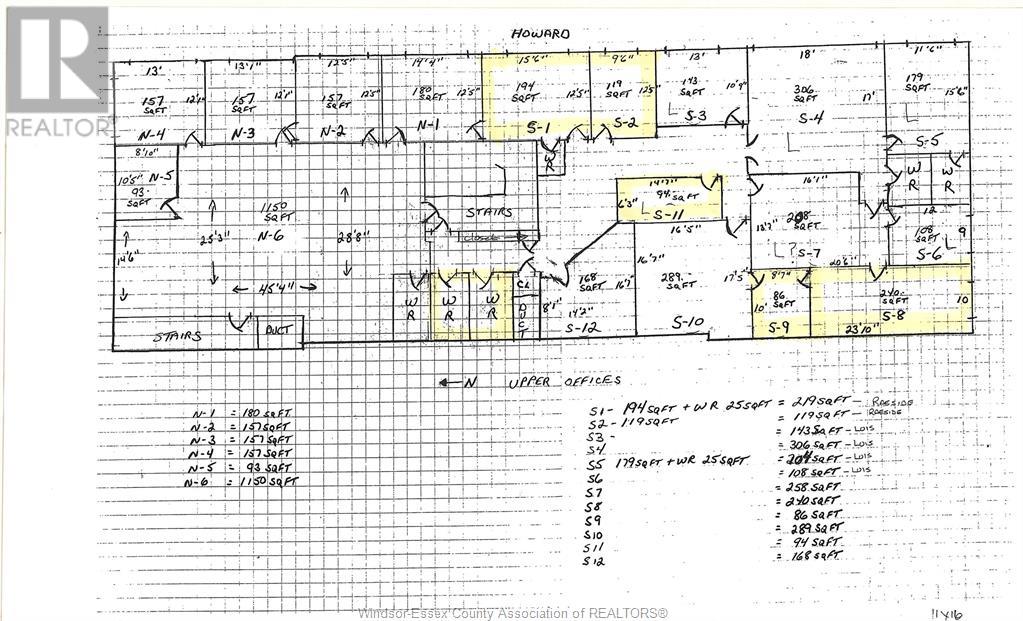 HOWARD
R
REALTOR
13' 13'1" 12'5" 14'4" 15'6" 9'6" 13' 18' 11'6"
157 SQFT 12'1" 157 SQFT 12'1" 157 SQFT 12'5" 180 SQFT 12'5" 194 SQFT 12'5" 119 SQFT 12'5" 143 SQFT 10'9" 306 SQFT 17' 179 SQFT 15'6"
N-4 N-3 N-2 N-1 S-1 S-2 S-3 L S-4 L S-5 L
8'10" N-5
10'5" 93 SQFT
WR
WR WR
1150 SQFT
25'3" N-6 28'8"
14'6"
45'4"
STAIRS
CLOSET
14'7"
94 SQFT
6'3" L S-11
16'1"
13'7" L? S-7
12
108 SQFT 9
L S-6
16'5"
16'7" 289 SQFT 17'5"
S-10
168 SQFT 16'7"
8'1" 14'2"
S-12
CL
DUCT
WR WR WR
8'7" 20'6"
10' 86 SQFT
S-9
240 SQFT 10
S-8
23'10"
STAIRS DUCT
← N UPPER OFFICES
N-1 = 180 SQFT
N-2 = 157 SQFT
N-3 = 157 SQFT
N-4 = 157 SQFT
N-5 = 93 SQFT
N-6 = 1150 SQFT
S1 - 194 SQFT + WR 25 SQFT = 219 SQFT
S2 - 119 SQFT = 119 SQFT
S3 - = 143 SQFT - LOIS
S4 = 306 SQFT - LOIS
S5 179 SQFT + WR 25 SQFT = 204 SQFT - LOIS
S6 = 108 SQFT - LOIS
S7 = 258 SQFT
S8 = 240 SQFT
S9 = 86 SQFT
S10 = 289 SQFT
S11 = 94 SQFT
S12 = 168 SQFT
Windsor-Essex County Association of REALTORS®
11X16